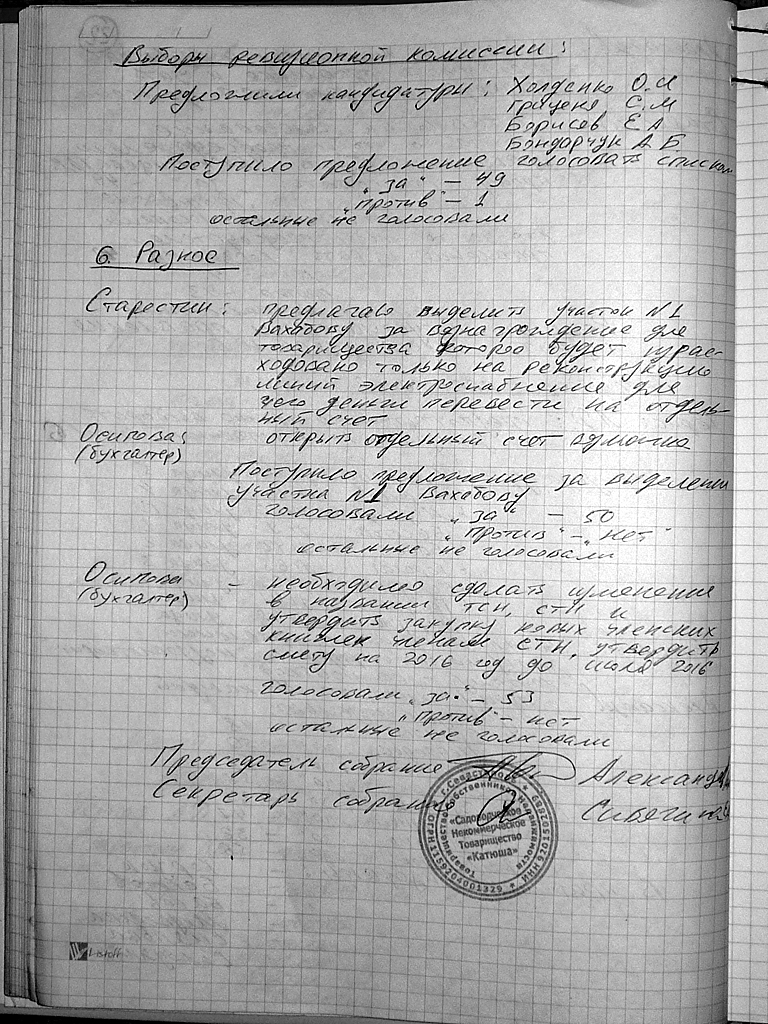 Выборы ревизионной комиссии:
Предложили кандидатуры: Холденко О.И
Грицена С.М
Борисов Е А
Бондарчук А Б
Поступило предложение голосовать списком
"за" – 49
"против" – 1
остальные не голосовали
6. Разное
Старестин: предлагаю выделить участок N1
Вахабову за вознаграждение для
товарищества которое будет израс-
ходовано только на реконструкцию
линий электроснабжение для
чего деньги перевести на отдель-
ный счет
Осипова: открыть отдельный счет
(бухгалтер)
Поступило предложение за выделении
участка N1 Вахабову
голосовали "за" – 50
"против" – "нет"
остальные не голосовали
Осипова – необходимо сделать изменение
(бухгалтер) в названии ТСН, СТН и
утвердить закупку новых членских
книжек членам СТН, утвердить
смету на 2016 год до июля 2016
голосовали "за" – 53
"против" – нет
остальные не голосовали
Председатель собрание
Секретарь собрания
г. Севастополь
Товарищество собственников недвижимости
«Садоводческое
Некоммерческое
Товарищество
«Катюша»
ОГРН 1159204001329
ИНН 9201502682
Listoff